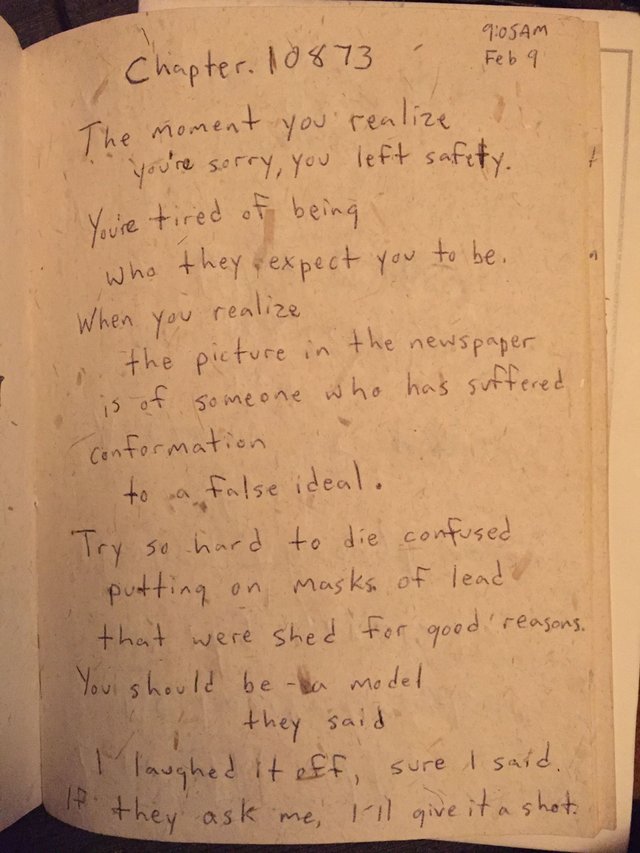 9:05AM
Feb 9
Chapter. 10873
The moment you realize
you're sorry, you left safety.
You're tired of being
who they expect you to be.
When you realize
the picture in the newspaper
is of someone who has suffered
conformation
to a false ideal.
Try so hard to die confused
putting on masks of lead
that were shed for good reasons.
You should be - a model
they said
I laughed it off, sure I said.
If they ask me, I'll give it a shot.